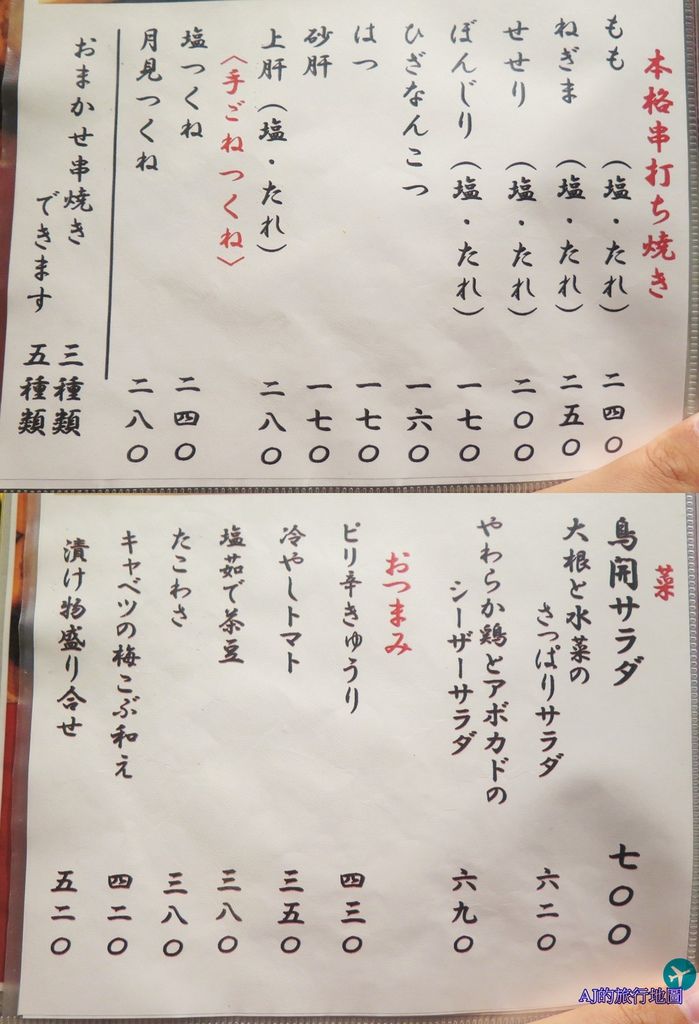 本格串打ち焼き
もも（塩・たれ） 二四〇
ねぎま（塩・たれ） 二五〇
せせり（塩・たれ） 二〇〇
ぼんじり（塩・たれ） 一七〇
ひざなんこつ 一六〇
はつ 一七〇
砂肝 一七〇
上肝（塩・たれ） 二八〇
〈手ごねつくね〉
塩つくね 二四〇
月見つくね 二八〇
おまかせ串焼き
できます
三種類
五種類
菜
鳥開サラダ 七〇〇
大根と水菜の
さっぱりサラダ 六二〇
やわらか鶏とアボカドの
シーザーサラダ 六九〇
おつまみ
ピリ辛きゅうり 四三〇
冷やしトマト 三五〇
塩茹で茶豆 三八〇
たこわさ 三八〇
キャベツの梅こぶ和え 四二〇
漬け物盛り合せ 五二〇
AJ的旅行地圖